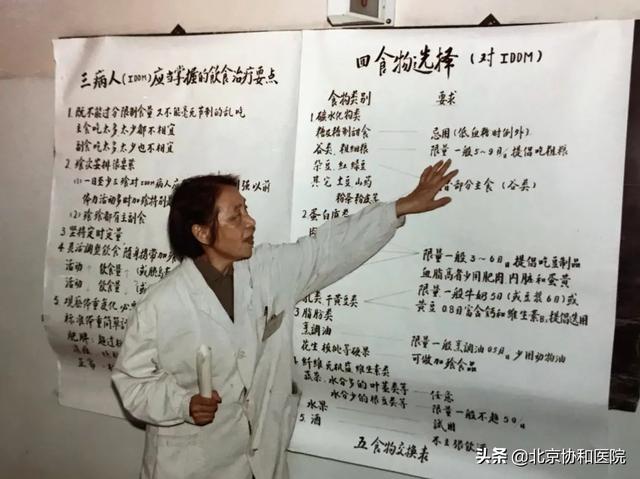 三病人(IDDM)应当掌握的飲食治疗要点
1. 既不能过分限制食量又不能毫无节制的乱吃
主食吃太多太少都不相宜
副食吃太多太少也不相宜
2. 餐次安排很要紧
(1) 一日至少三餐对IDDM病人应
体力活动多时加餐特别
(2) 每餐都有主副食
3. 坚持定时定量
4. 灵活调整飲食 随身携带加
活动 飲食量
活动 飲食量
5. 观察体重变化
标准体重简算
肥胖
四食物选择(对IDDM)
食物类别 要求
1. 碳水化物类
糖及糖制甜食 忌用(低血糖时例外)
谷类、粗细粮 限量一般5~9 提倡吃粗粮
杂豆、红绿豆
其它 土豆、山药 部分主食(谷类)
粉条粉皮等
2. 蛋白质类
限量一般3~6 提倡吃豆制品
血脂高者少用肥肉、内脏和蛋黄
乳类、干黄豆类 限量、一般牛奶5(或豆浆6)或
黄豆0.8 富含钙和维生素B 提倡选用
3. 脂肪类
烹调油 限量一般烹调油0.5 少用动物油
花生、核桃等硬果 可做加餐食品
4. 纤维无机盐维生素类
蔬菜、水分多的叶菜类等 任意
水分少的根豆类等 限量一般不超50
水果 试用
5. 酒 不主张飲酒
五食物交换表
头条 @北京协和医院